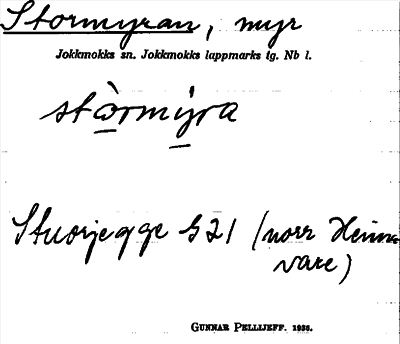 Stormyran, myr
Jokkmokks sn. Jokkmokks lappmarks tg. Nb l.
stòrmýra
Stuorjegge G21 (norr
vare)
GUNNAR PELLIJEFF. 1938.